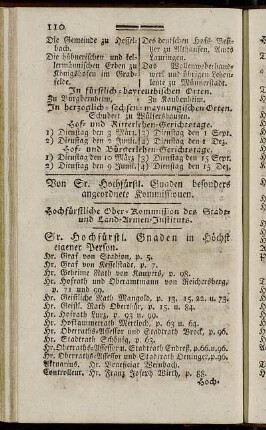 110
Die Gemeinde zu Hessel-
bach.
Die hübnerischen und kel-
lermännischen Erben zu
Königshofen im Grab-
felde.
Des deutschen Hofs Besi-
tzer zu Althausen, Amts
Lauringen.
Das Wollenweberhand-
werk und übrigen Lehen-
leute zu Münnerstadt.
In fürstlich-bayreuthischen Orten.
Zu Burgbernheim, Zu Kaubenheim.
In herzoglich-sachsen-maynungischen Orten.
Schubert zu Wülfershausen.
Hof- und Ritterlehen-Gerichtstage.
1) Dienstag den 3 März, 3) Dienstag den 1 Sept.
2) Dienstag den 2 Junii, 4) Dienstag den 1 Dez.
Hof- und Bürgerlehen-Gerichtstage.
1) Dienstag den 10 März, 3) Dienstag den 15 Sept.
2) Dienstag den 9 Junii, 4) Dienstag den 15 Dez.
Von Sr. Hochfürstl. Gnaden besonders
angeordnete Kommissionen.
Hochfürstliche Ober-Kommission des Stadt-
und Land-Armen-Instituts.
Sr. Hochfürstl. Gnaden in Höchst
eigener Person.
Hr. Graf von Stadion, p. 5.
Hr. Graf von Kesselstadt, p. 7.
Hr. Geheime Rath von Kauerts, p. 98.
Hr. Hofrath und Oberamtmann von Reichersberg,
p. 71 und 99.
Hr. Geistliche Rath Mangold, p. 13. 15. 22. u. 73.
Hr. Geistliche Rath Oberthür, p. 15.
Hr. Hofrath Lurz, p. 93 u. 99.
Hr. Hofkammerrath Mertloch, p. 63 u. 64.
Hr. Oberraths-Assessor und Stadtrath Brock, p. 96.
Hr. Stadtrath Schönig, p. 63.
Hr. Oberraths-Assessor u. Stadtrath Endres, p. 66. u. 96.
Hr. Oberraths-Assessor und Stadtrath Oeninger, p. 96.
Aktuarius. Hr. Benefiziat Weinbach.
Controlleur. Hr. Franz Joseph Wirth, p. 88.
Hoch-